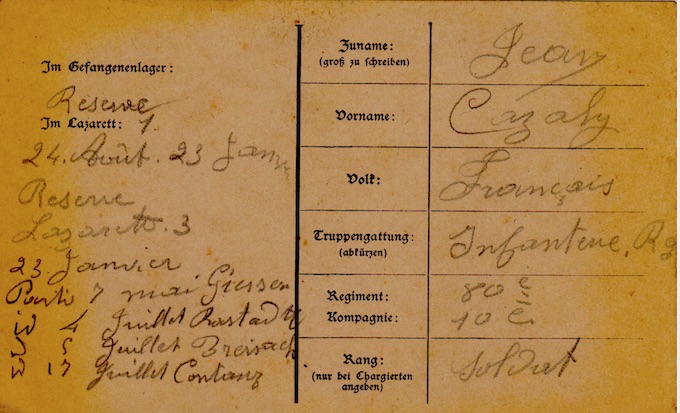 Im Gefangenenlager:
Reserve
Im Lazarett: 1
24. Août. 23 Janv
Reserve
Lazarett. 3
23 Janvier
Parti 7 mai Giessen
4 Juillet Rastadt
5 Juillet Breisach
17 Juillet Contanz
Zuname: Jean
(groß zu schreiben)
Vorname: Cazaly
Volk: Français
Truppengattung: Infanterie. Rg
(abkürzen)
Regiment: 80 e
Kompagnie: 10 e
Rang: Soldat
(nur bei Chargierten
angeben)